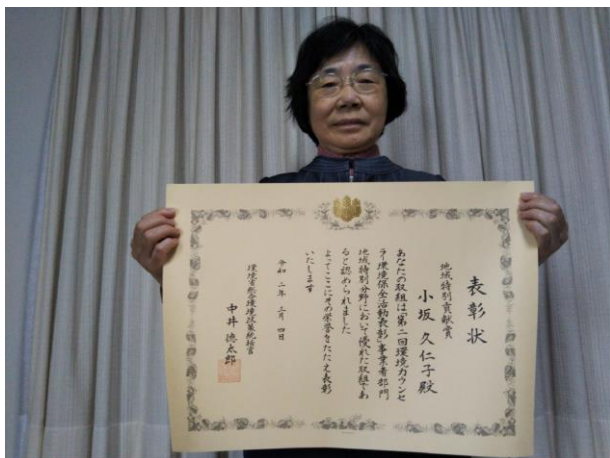 表彰状
地域特別貢献賞
小坂 久仁子 殿
あなたの取組は「第二回環境カウンセ
ラー環境保全活動表彰」事業者部門
地域特別分野において優れた取組であ
ると認められました
よってここにその栄誉をたたえ表彰
いたします
令和二年三月四日
環境省総合環境政策統括官
中井 徳太郎